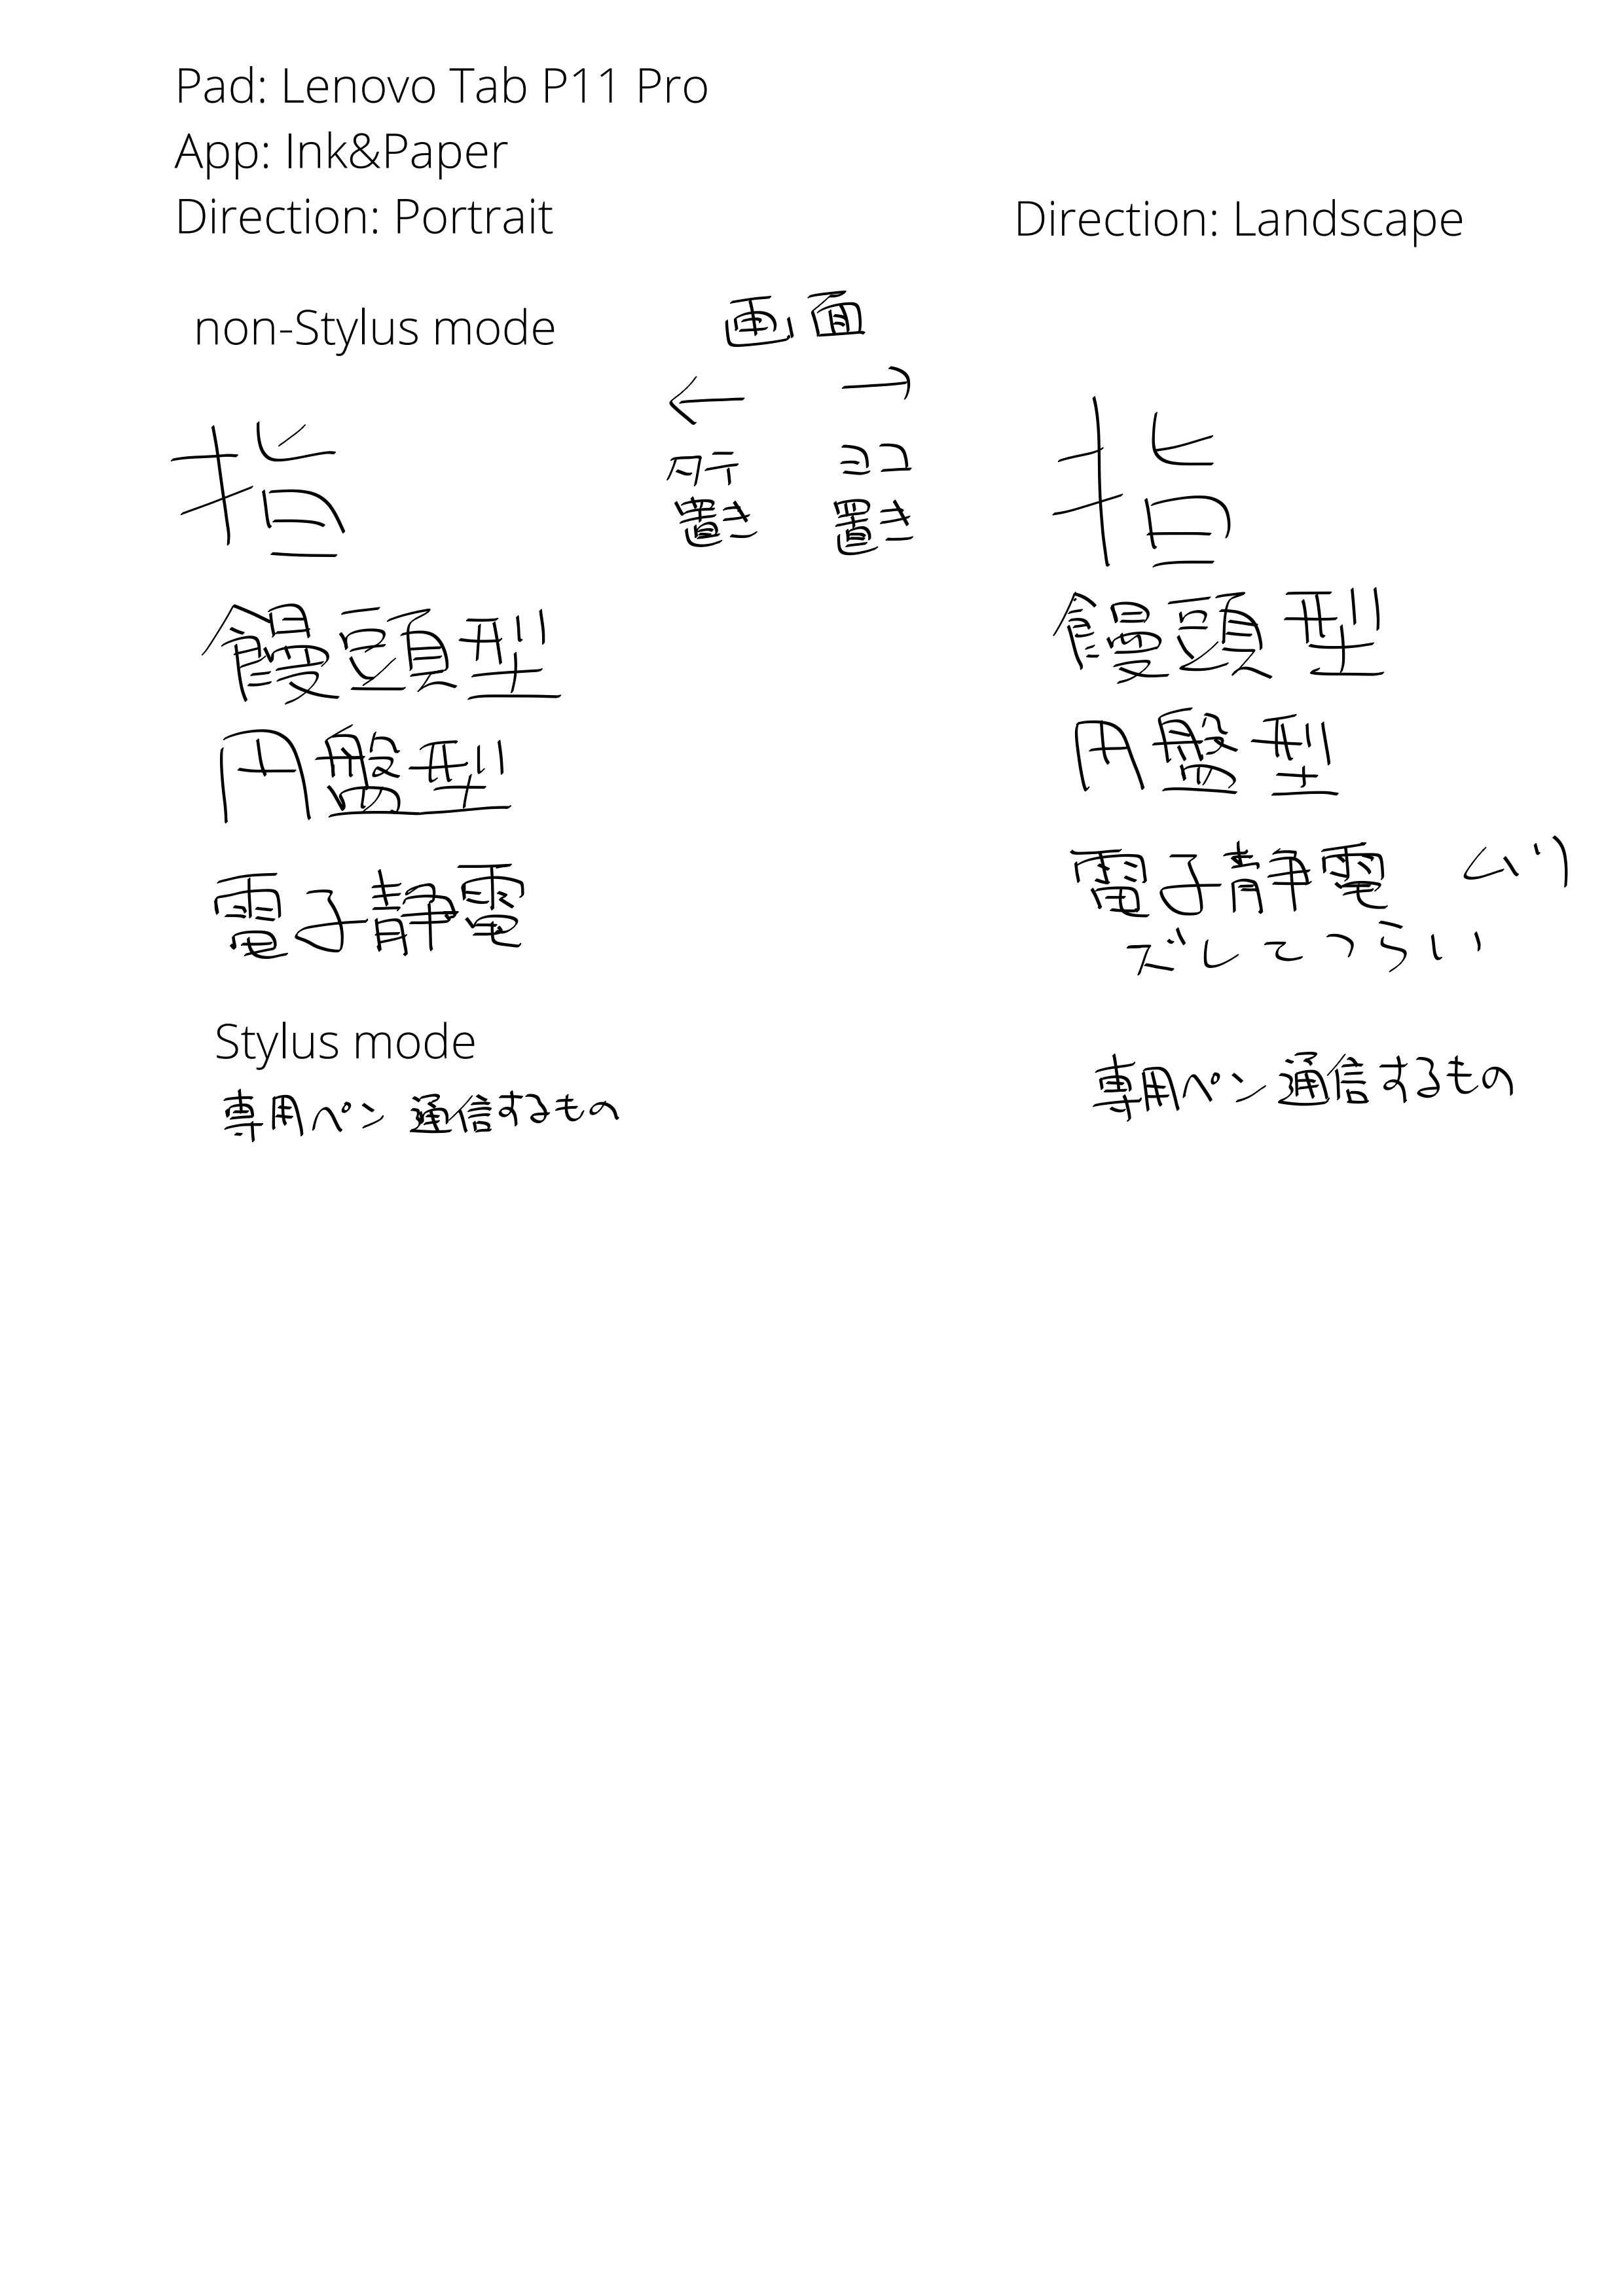 Pad: Lenovo Tab P11 Pro
App: Ink&Paper
Direction: Portrait
Direction: Landscape
non-Stylus mode
画面
← →
タテ ヨコ
置き 置き
指
饅頭型
円盤型
電子静電
指
饅頭型
円盤型
電子静電 ムリ
ズレてつらい
Stylus mode
専用ペン 通信するもの
専用ペン 通信するもの